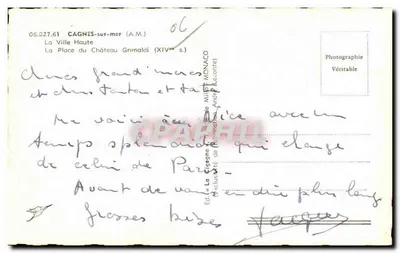 06.027.61 CAGNES-sur-mer (A.M.)
La Ville Haute
La Place du Château Grimaldi (XIVᵉ s.)
06
Photographie
Véritable
Chères grand'mères
et chers tonton et tata
Me voici à Nice avec un
temps splendide qui change
de celui de Paris.
Avant de vous en dire plus long
Grosses bises
Jacques
CARTE